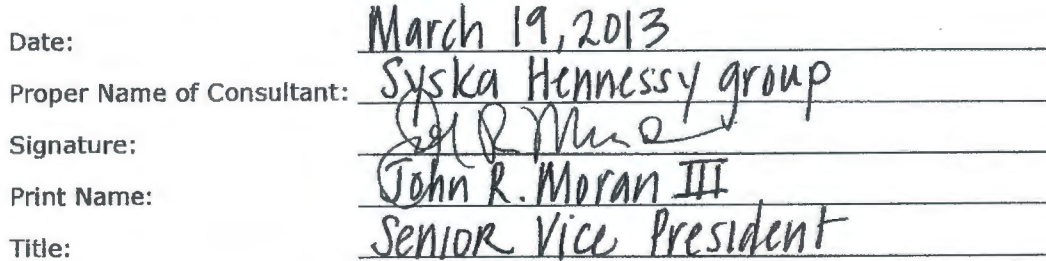 Date: March 19, 2013
Proper Name of Consultant: Syska Hennessy group
Signature:
Print Name: John R. Moran III
Title: Senior Vice President